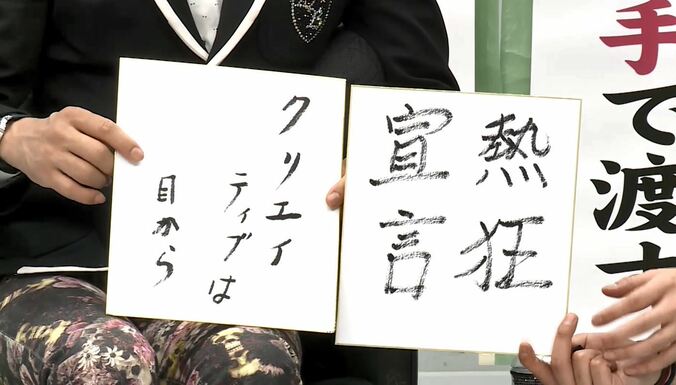 手で渡
熱狂
宣言
クリエイ
ティブは
目から